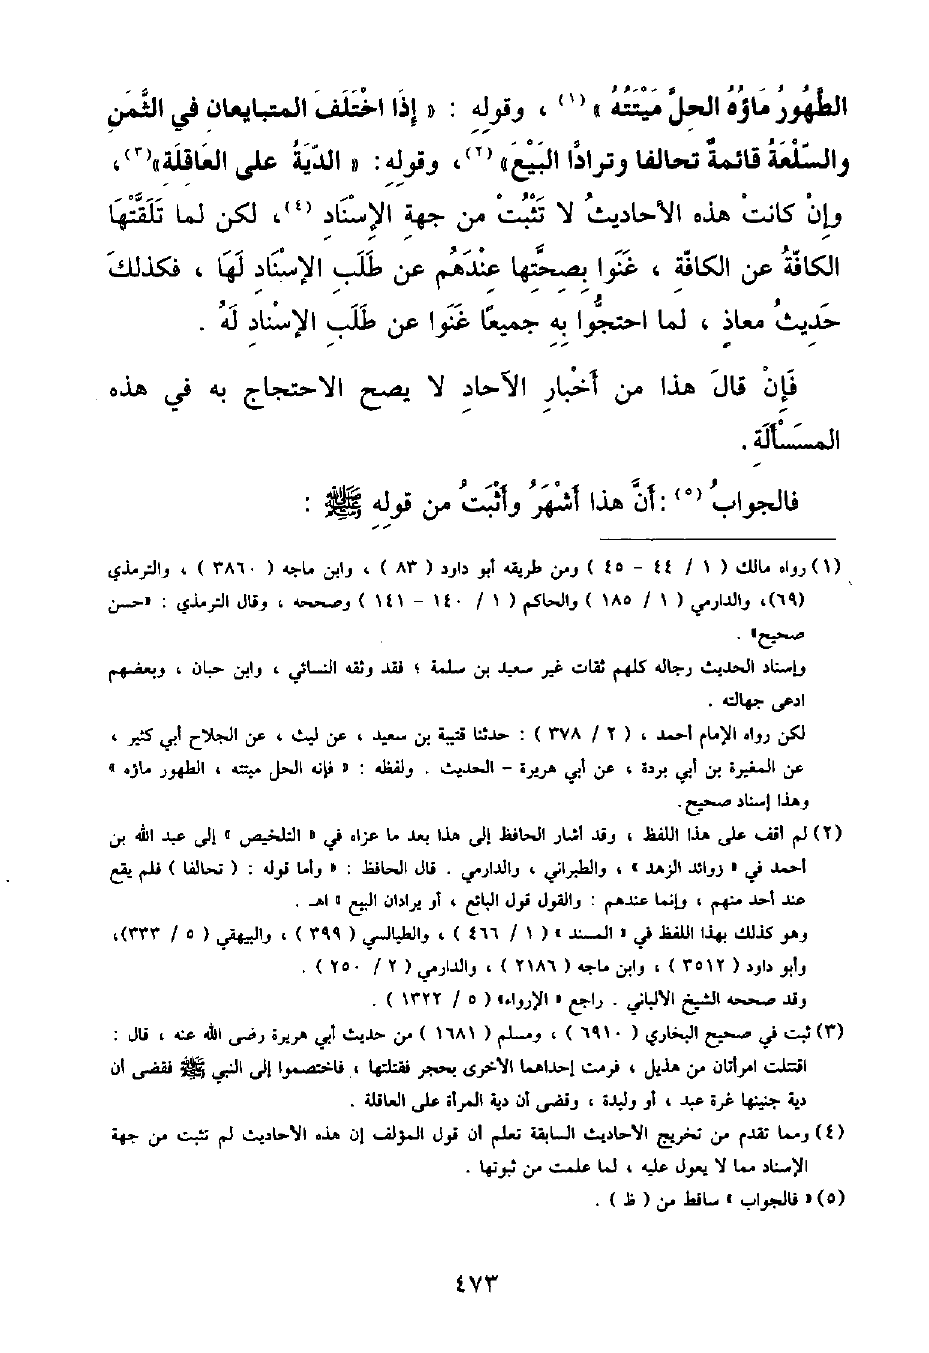 الطَّهُورُ مَاؤُهُ الحِلُّ مَيْتَتُهُ » (١) ، وقولِهِ : « إِذَا اخْتَلَفَ المتبايعان في الثَّمَنِ
والسِّلْعَةُ قائمةٌ تحالفا وترادَّا البَيْعَ» (٢)، وقولِهِ: « الدِّيَةُ على العَاقلَة»(٣)،
وإنْ كانتْ هذه الأحاديثُ لا تَثْبُتْ من جهةِ الإسْنَادِ (٤)، لكن لما تَلَقَّتْهَا
الكافّةُ عن الكافّةِ ، غَنَوا بِصحَّتِها عِنْدَهُم عن طَلَبِ الإسْنَادِ لَهَا ، فكذلكَ
حَدِيثُ معاذٍ ، لما احتجُّوا بِهِ جميعًا غَنَوا عن طَلَبِ الإسْنادِ لَهُ .
فَإِنْ قالَ هذا من أَخْبارِ الآحادِ لا يصح الاحتجاج به في هذه
المسَسْأَلَةِ .
فالجوابُ (٥) : أَنَّ هذا أَشْهَرُ وأَثْبَتُ من قولِهِ ﷺ :
(١) رواه مالك ( ١ / ٤٤ - ٤٥ ) ومن طريقه أبو داود ( ٨٣ ) ، وابن ماجه ( ٣٨٦٠ ) ، والترمذي
(٦٩)، والدارمي ( ١ / ١٨٥ ) والحاكم ( ١ / ١٤٠ - ١٤١ ) وصححه ، وقال الترمذي : «حسن
صحيح» .
وإسناد الحديث رجاله كلهم ثقات غير سعيد بن سلمة ؛ فقد وثقه النسائي ، وابن حبان ، وبعضهم
ادعى جهالته .
لكن رواه الإمام أحمد ، ( ٢ / ٣٧٨ ) : حدثنا قتيبة بن سعيد ، عن ليث ، عن الجلاح أبي كثير ،
عن المغيرة بن أبي بردة ، عن أبي هريرة - الحديث . ولفظه : « فإنه الحل ميتته ، الطهور ماؤه »
وهذا إسناد صحيح.
(٢) لم أقف على هذا اللفظ ، وقد أشار الحافظ إلى هذا بعد ما عزاه في « التلخيص » إلى عبد الله بن
أحمد في « زوائد الزهد » ، والطبراني ، والدارمي . قال الحافظ : « وأما قوله : ( تحالفا ) فلم يقع
عند أحد منهم ، وإنما عندهم : والقول قول البائع ، أو يرادان البيع » اهـ .
وهو كذلك بهذا اللفظ في « المسند » ( ١ / ٤٦٦ ) ، والطيالسي ( ٣٩٩ ) ، والبيهقي ( ٥ / ٣٣٣)،
وأبو داود ( ٣٥١٢ ) ، وابن ماجه ( ٢١٨٦ ) ، والدارمي ( ٢ / ٢٥٠ ) .
وقد صححه الشيخ الألباني . راجع « الإرواء» ( ٥ / ١٣٢٢ ) .
(٣) ثبت في صحيح البخاري ( ٦٩١٠ ) ، ومسلم ( ١٦٨١ ) من حديث أبي هريرة رضى الله عنه ، قال :
اقتتلت امرأتان من هذيل ، فرمت إحداهما الأخرى بحجر فقتلتها ، فاختصموا إلى النبي ﷺ فقضى أن
دية جنينها غرة عبد ، أو وليدة ، وقضى أن دية المرأة على العاقلة .
(٤) ومما تقدم من تخريج الأحاديث السابقة تعلم أن قول المؤلف إن هذه الأحاديث لم تثبت من جهة
الإسناد مما لا يعول عليه ، لما علمت من ثبوتها .
(٥) « فالجواب » ساقط من ( ظ ) .
٤٧٣